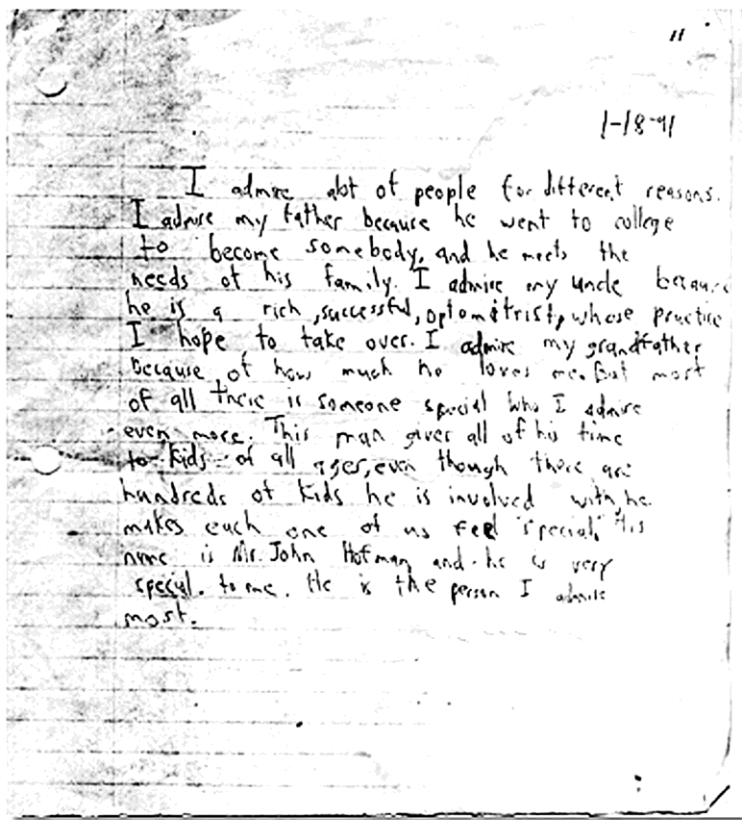 11
1-18-91
I admire alot of people for different reasons.
I admire my father because he went to college
to become somebody, and he meets the
needs of his family. I admire my uncle because
he is a rich, successful, optometrist, whose practice
I hope to take over. I admire my grandfather
because of how much he loves me. But most
of all there is someone special who I admire
even more. This man gives all of his time
to kids of all ages, even though there are
hundreds of kids he is involved with, he
makes each one of us feel "special." His
name is Mr. John Hofman and he is very
special to me. He is the person I admire
most.